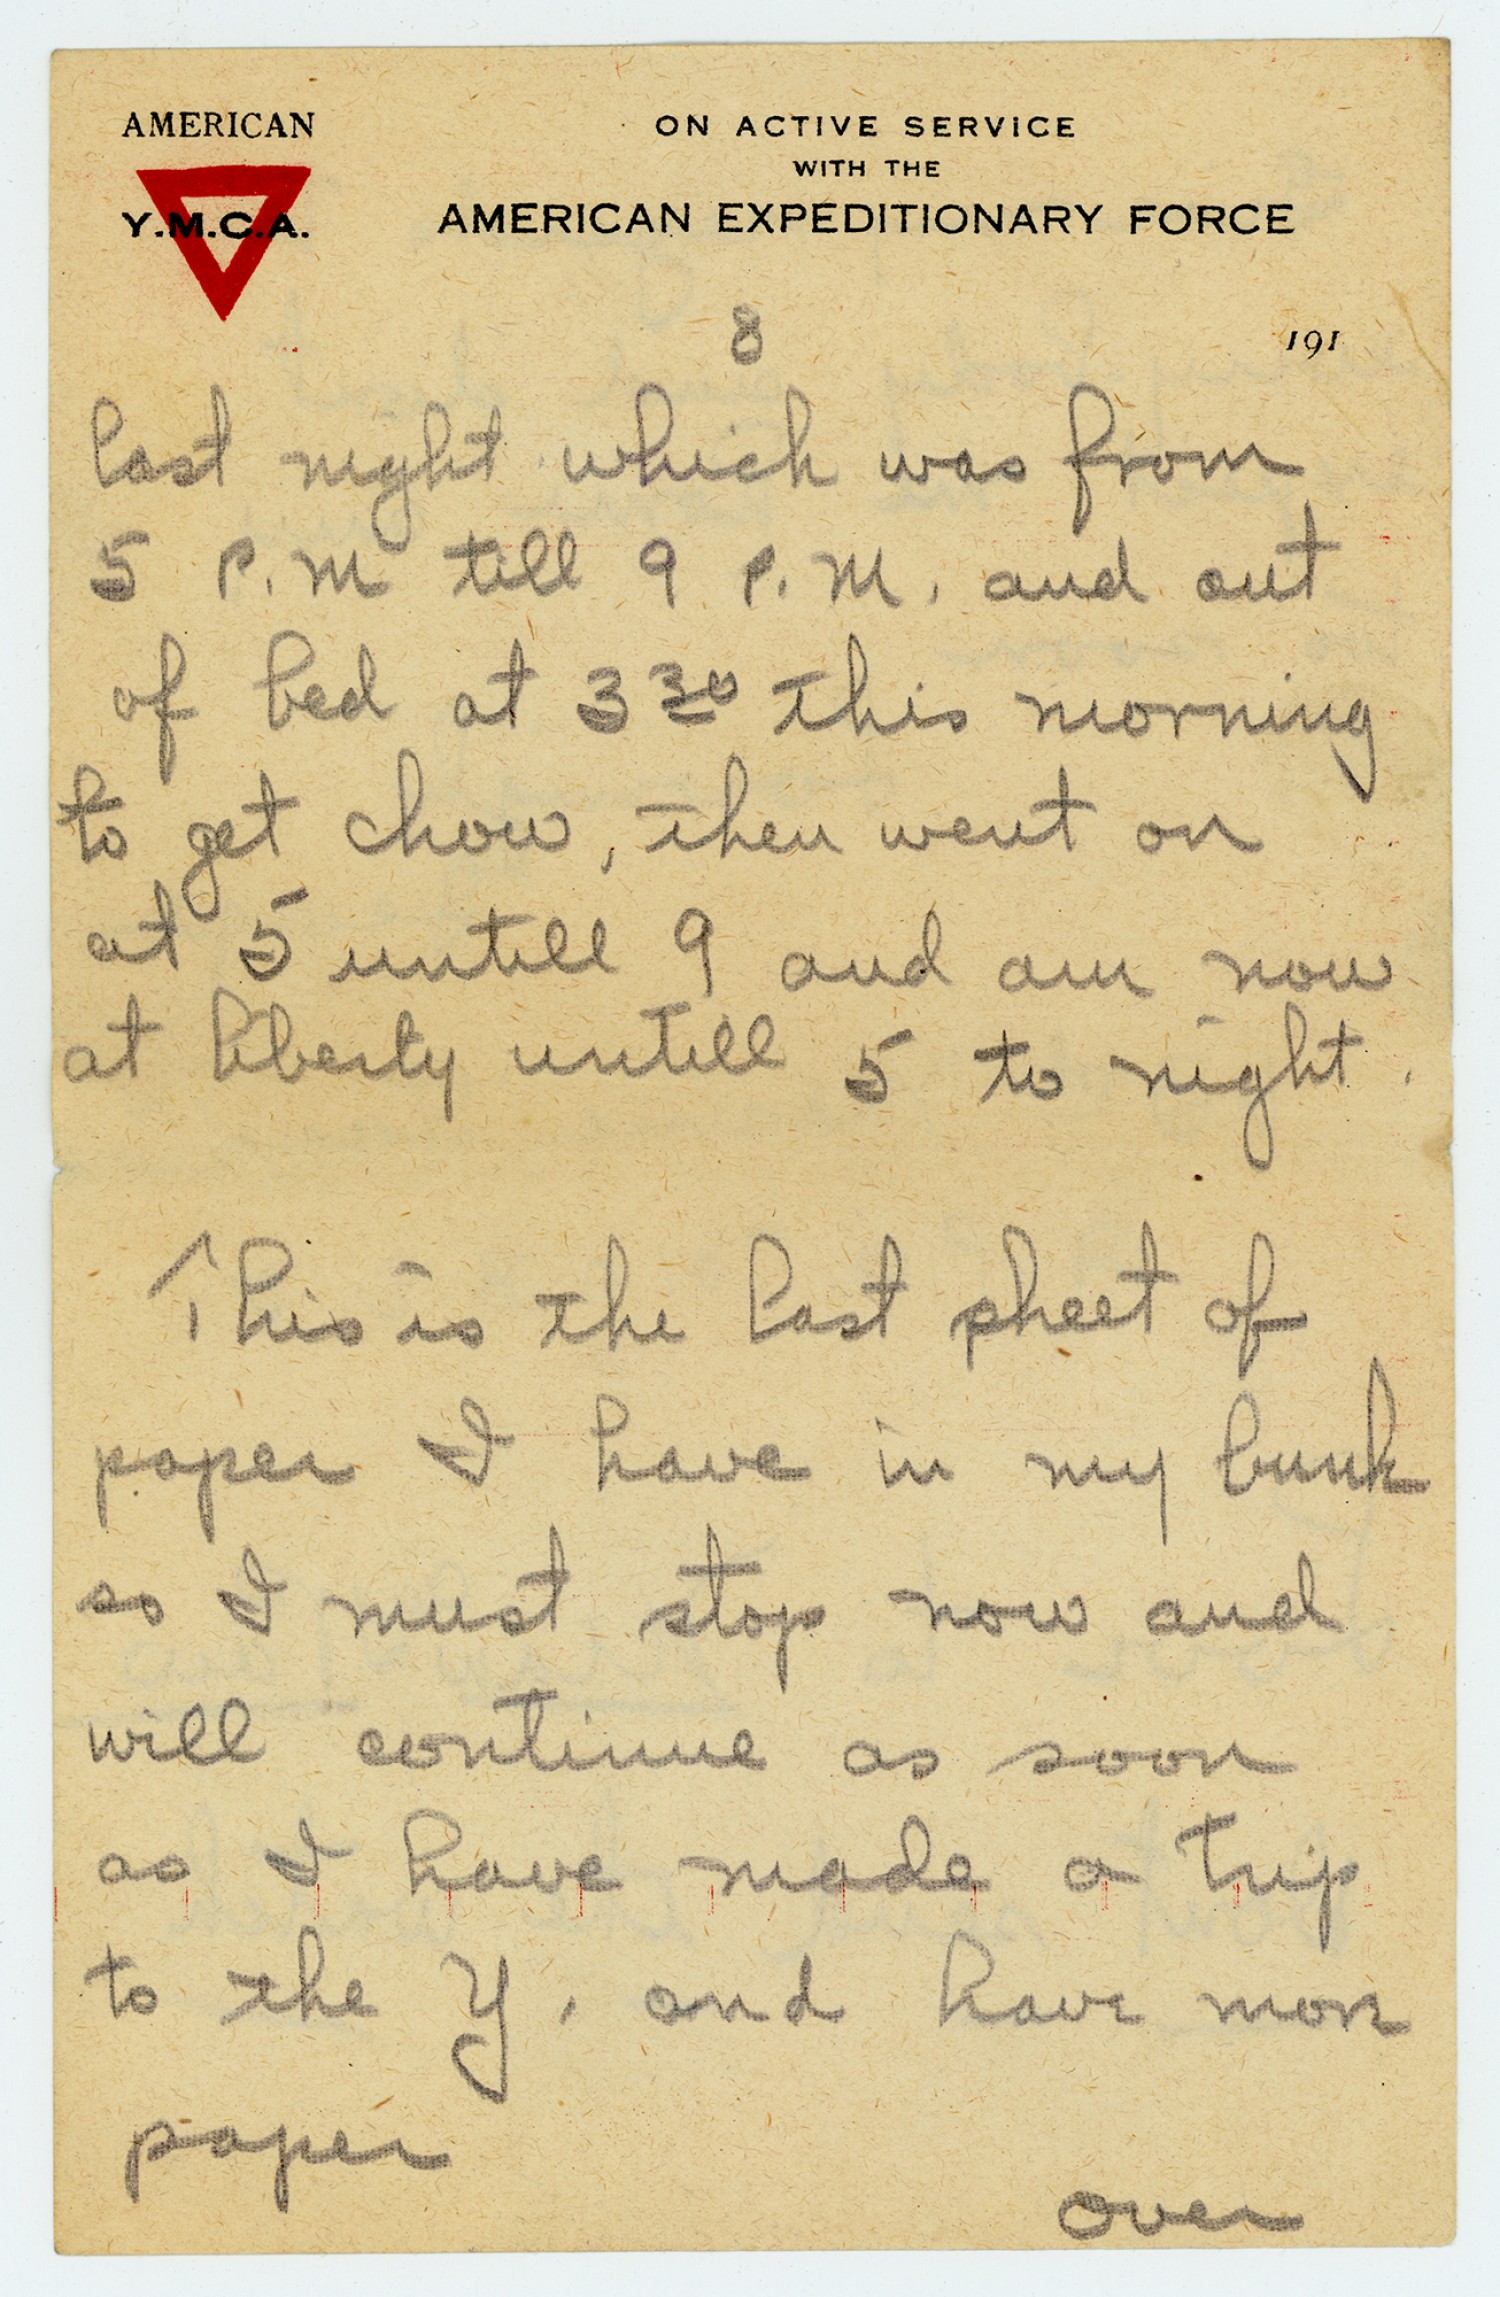 AMERICAN
Y.M.C.A.
ON ACTIVE SERVICE
WITH THE
AMERICAN EXPEDITIONARY FORCE
8
191
last night which was from
5 P.M till 9 P.M. and out
of bed at 3 30 this morning
to get chow, then went on
at 5 untill 9 and am now
at liberty untill 5 to night.
This is the last sheet of
paper I have in my bunk
so I must stop now and
will continue as soon
as I have made a trip
to the Y, and have more
paper
over